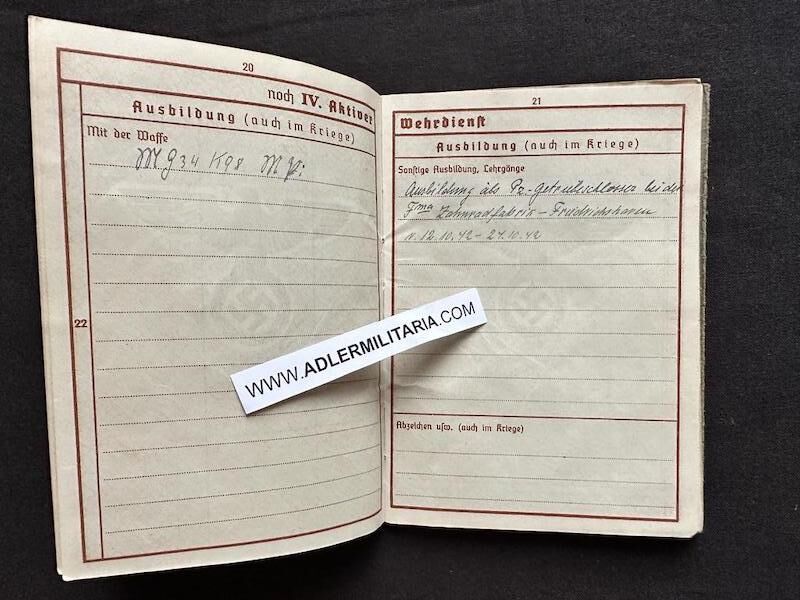 20
noch IV. Aktiver
Ausbildung (auch im Kriege)
Mit der Waffe
M G 34 K98 M Pi
22
21
Wehrdienst
Ausbildung (auch im Kriege)
Sonstige Ausbildung, Lehrgänge
Ausbildung als Pz-Getriebeschlosser bei der
Fma Zahnradfabrik - Friedrichshafen
v. 12.10.42 - 24.10.42
Abzeichen usw. (auch im Kriege)
WWW.ADLERMILITARIA.COM